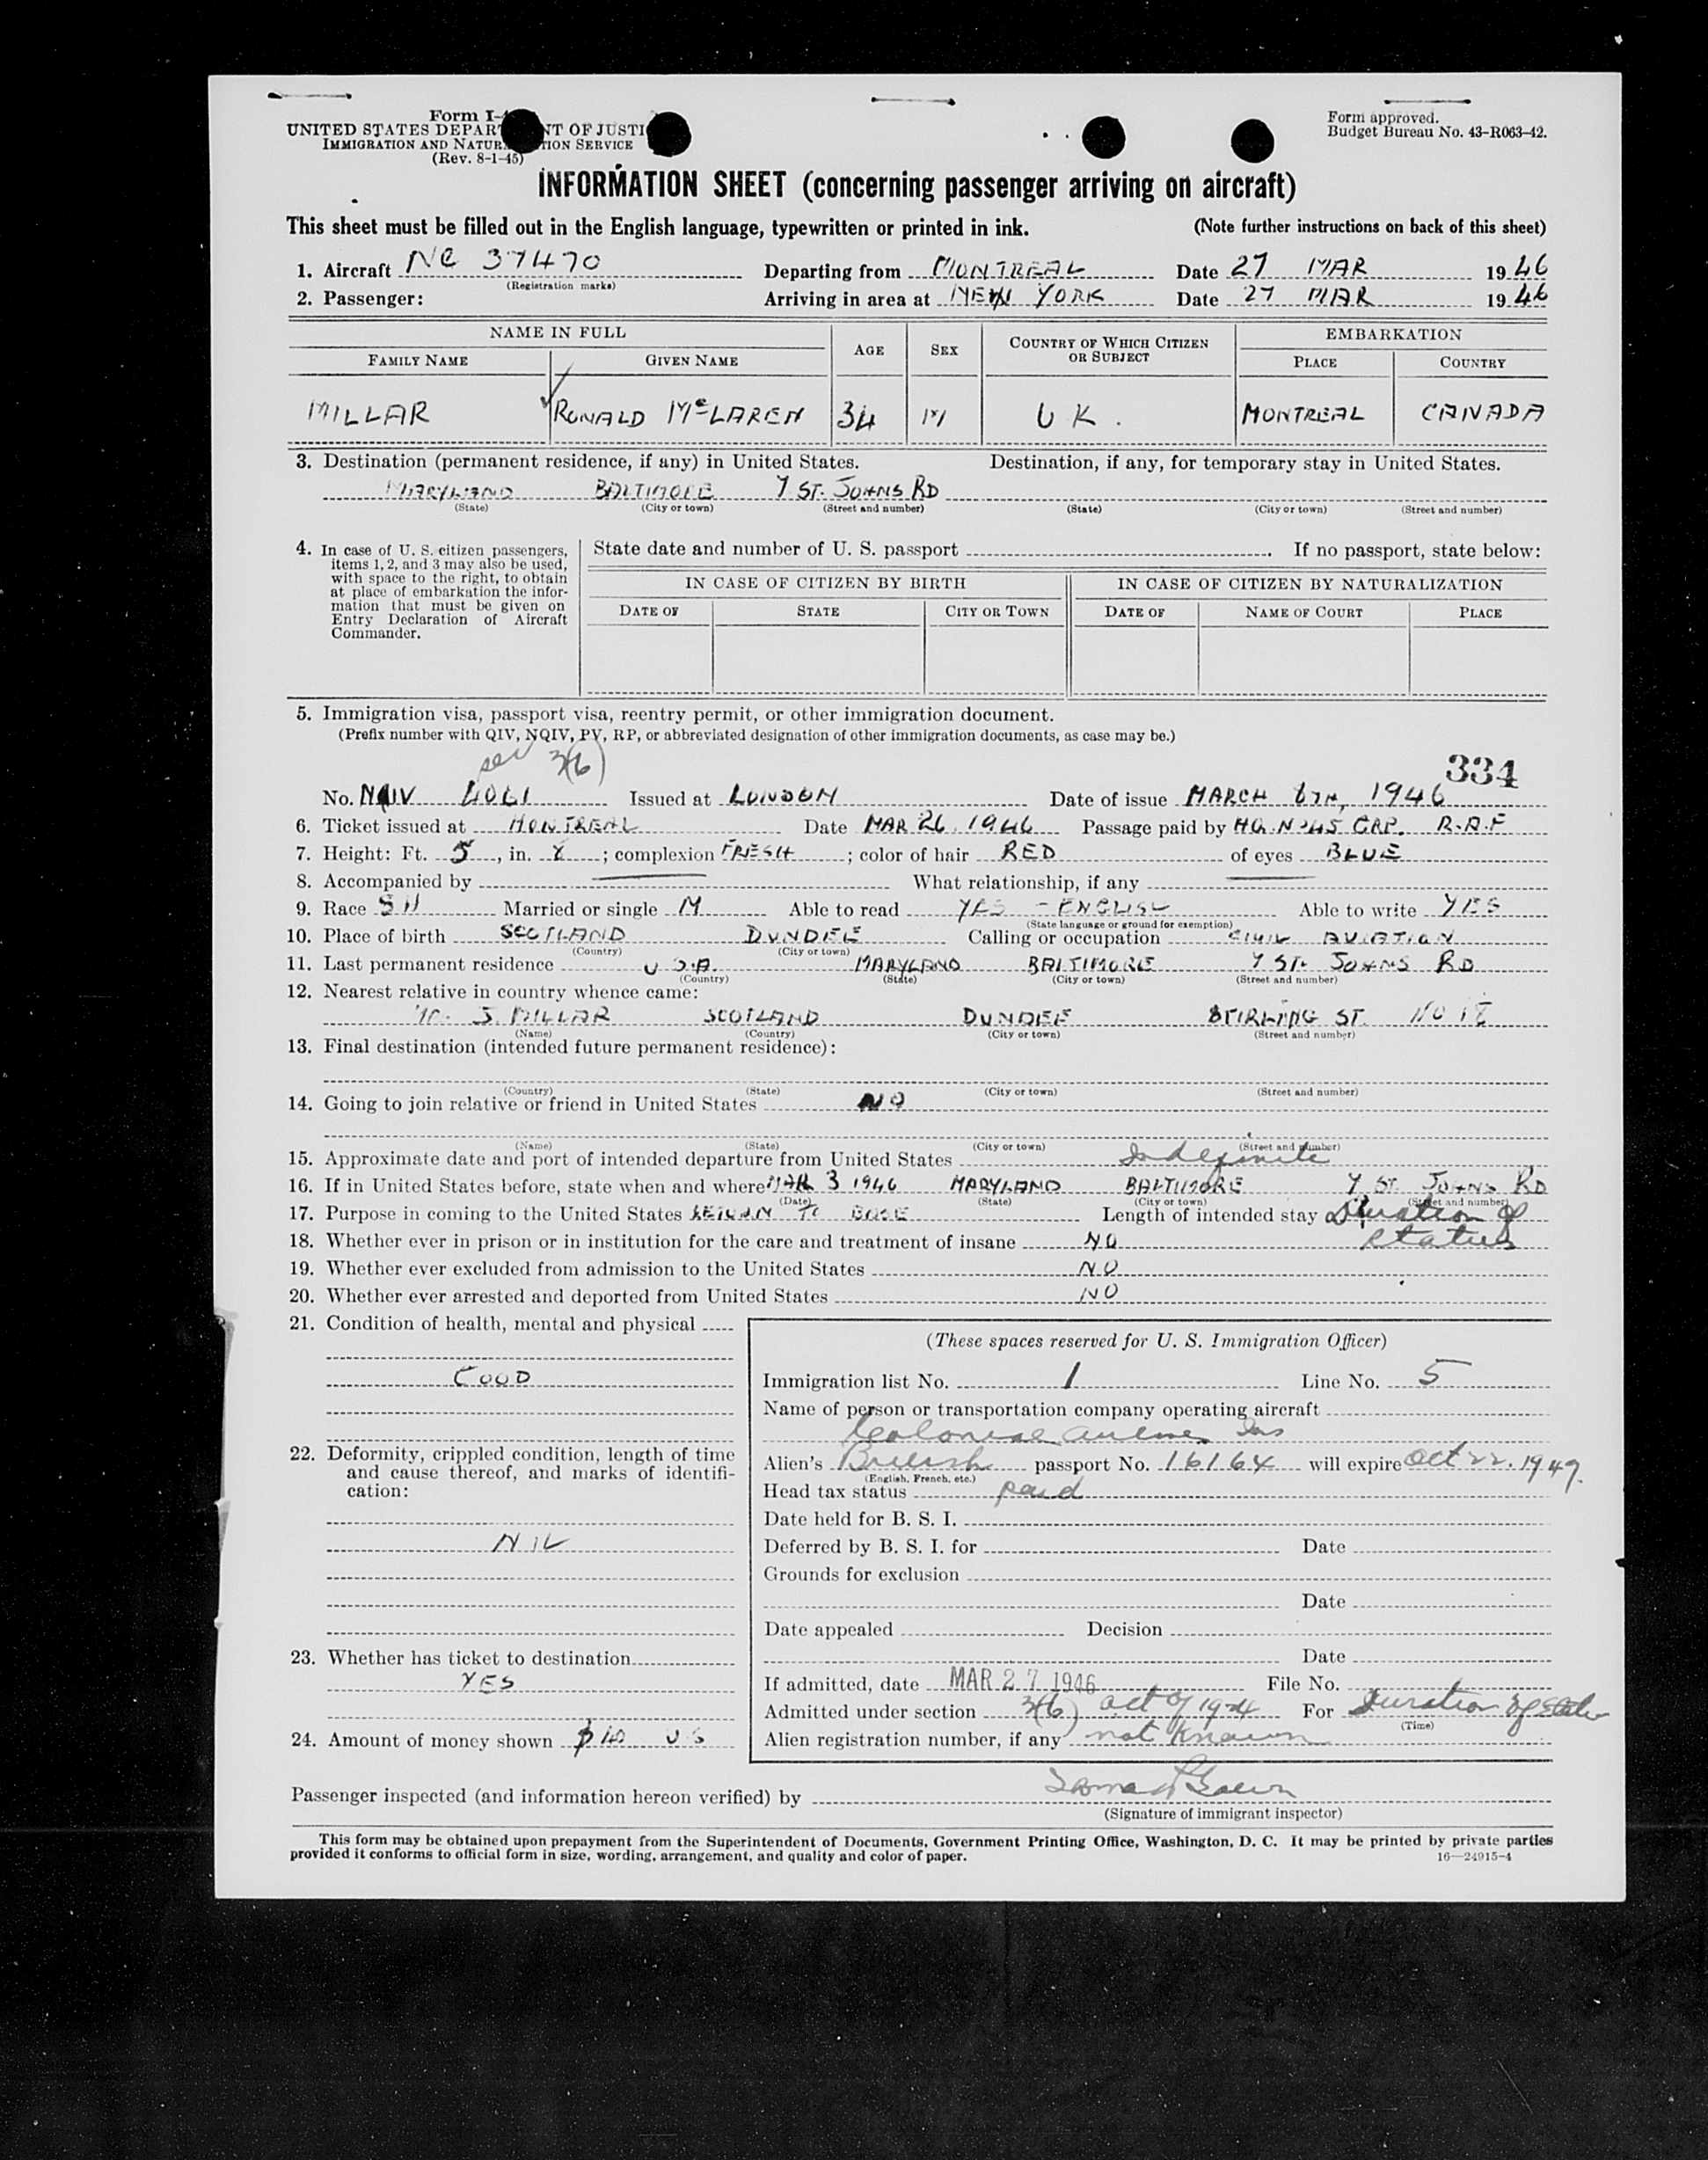 Form I-
UNITED STATES DEPAR NT OF JUSTI
IMMIGRATION AND NATUR TION SERVICE
(Rev. 8-1-45)
Form approved.
Budget Bureau No. 43-R063-42.
INFORMATION SHEET (concerning passenger arriving on aircraft)
This sheet must be filled out in the English language, typewritten or printed in ink. (Note further instructions on back of this sheet)
1. Aircraft NC 37470 Departing from MONTREAL Date 27 MAR 1946
(Registration marks)
2. Passenger: Arriving in area at NEW YORK Date 27 MAR 1946
NAME IN FULL AGE SEX COUNTRY OF WHICH CITIZEN OR SUBJECT EMBARKATION
FAMILY NAME GIVEN NAME PLACE COUNTRY
MILLAR RONALD McLAREN 34 M U K. MONTREAL CANADA
3. Destination (permanent residence, if any) in United States. Destination, if any, for temporary stay in United States.
MARYLAND BALTIMORE 7 ST. JOHNS RD
(State) (City or town) (Street and number) (State) (City or town) (Street and number)
4. In case of U. S. citizen passengers,
items 1, 2, and 3 may also be used,
with space to the right, to obtain
at place of embarkation the infor-
mation that must be given on
Entry Declaration of Aircraft
Commander.
State date and number of U. S. passport . If no passport, state below:
IN CASE OF CITIZEN BY BIRTH IN CASE OF CITIZEN BY NATURALIZATION
DATE OF STATE CITY OR TOWN DATE OF NAME OF COURT PLACE
5. Immigration visa, passport visa, reentry permit, or other immigration document.
(Prefix number with QIV, NQIV, PV, RP, or abbreviated designation of other immigration documents, as case may be.)
sec 3(6)
334
No. Issued at LONDON Date of issue MARCH 6TH, 1946
6. Ticket issued at MONTREAL Date MAR 26. 1946 Passage paid by HQ. No 45 GRP. R.A.F
7. Height: Ft. 5, in. ; complexion FRESH ; color of hair RED of eyes BLUE
8. Accompanied by What relationship, if any
9. Race Married or single M Able to read YES - ENGLISH Able to write YES
(State language or ground for exemption)
10. Place of birth SCOTLAND DUNDEE Calling or occupation CIVIL AVIATION
(Country) (City or town)
11. Last permanent residence U.S.A. MARYLAND BALTIMORE 7 ST. JOHNS RD
(Country) (State) (City or town) (Street and number)
12. Nearest relative in country whence came:
J. MILLAR SCOTLAND DUNDEE STIRLING ST. NO 18
(Name) (Country) (City or town) (Street and number)
13. Final destination (intended future permanent residence):
(Country) (State) (City or town) (Street and number)
14. Going to join relative or friend in United States NO
(Name) (State) (City or town) (Street and number)
15. Approximate date and port of intended departure from United States Indefinite
16. If in United States before, state when and where MAR 3 1946 MARYLAND BALTIMORE 7 ST. JOHNS RD
(Date) (State) (City or town) (Street and number)
17. Purpose in coming to the United States RETURN TO BASE Length of intended stay Duration of
18. Whether ever in prison or in institution for the care and treatment of insane NO status
19. Whether ever excluded from admission to the United States NO
20. Whether ever arrested and deported from United States NO
21. Condition of health, mental and physical
GOOD
22. Deformity, crippled condition, length of time
and cause thereof, and marks of identifi-
cation:
NIL
23. Whether has ticket to destination
YES
24. Amount of money shown $10 US
(These spaces reserved for U. S. Immigration Officer)
Immigration list No. 1 Line No. 5
Name of person or transportation company operating aircraft
Colonial Airlines Inc
Alien's British passport No. 16164 will expire Oct 22. 1947.
(English, French, etc.)
Head tax status paid
Date held for B. S. I.
Deferred by B. S. I. for Date
Grounds for exclusion
Date
Date appealed Decision
Date
If admitted, date MAR 27 1946 File No.
Admitted under section 3(6) act of 1924 For Duration of Status
(Time)
Alien registration number, if any not known
Passenger inspected (and information hereon verified) by
(Signature of immigrant inspector)
This form may be obtained upon prepayment from the Superintendent of Documents, Government Printing Office, Washington, D. C. It may be printed by private parties
provided it conforms to official form in size, wording, arrangement, and quality and color of paper. 16—24915-4